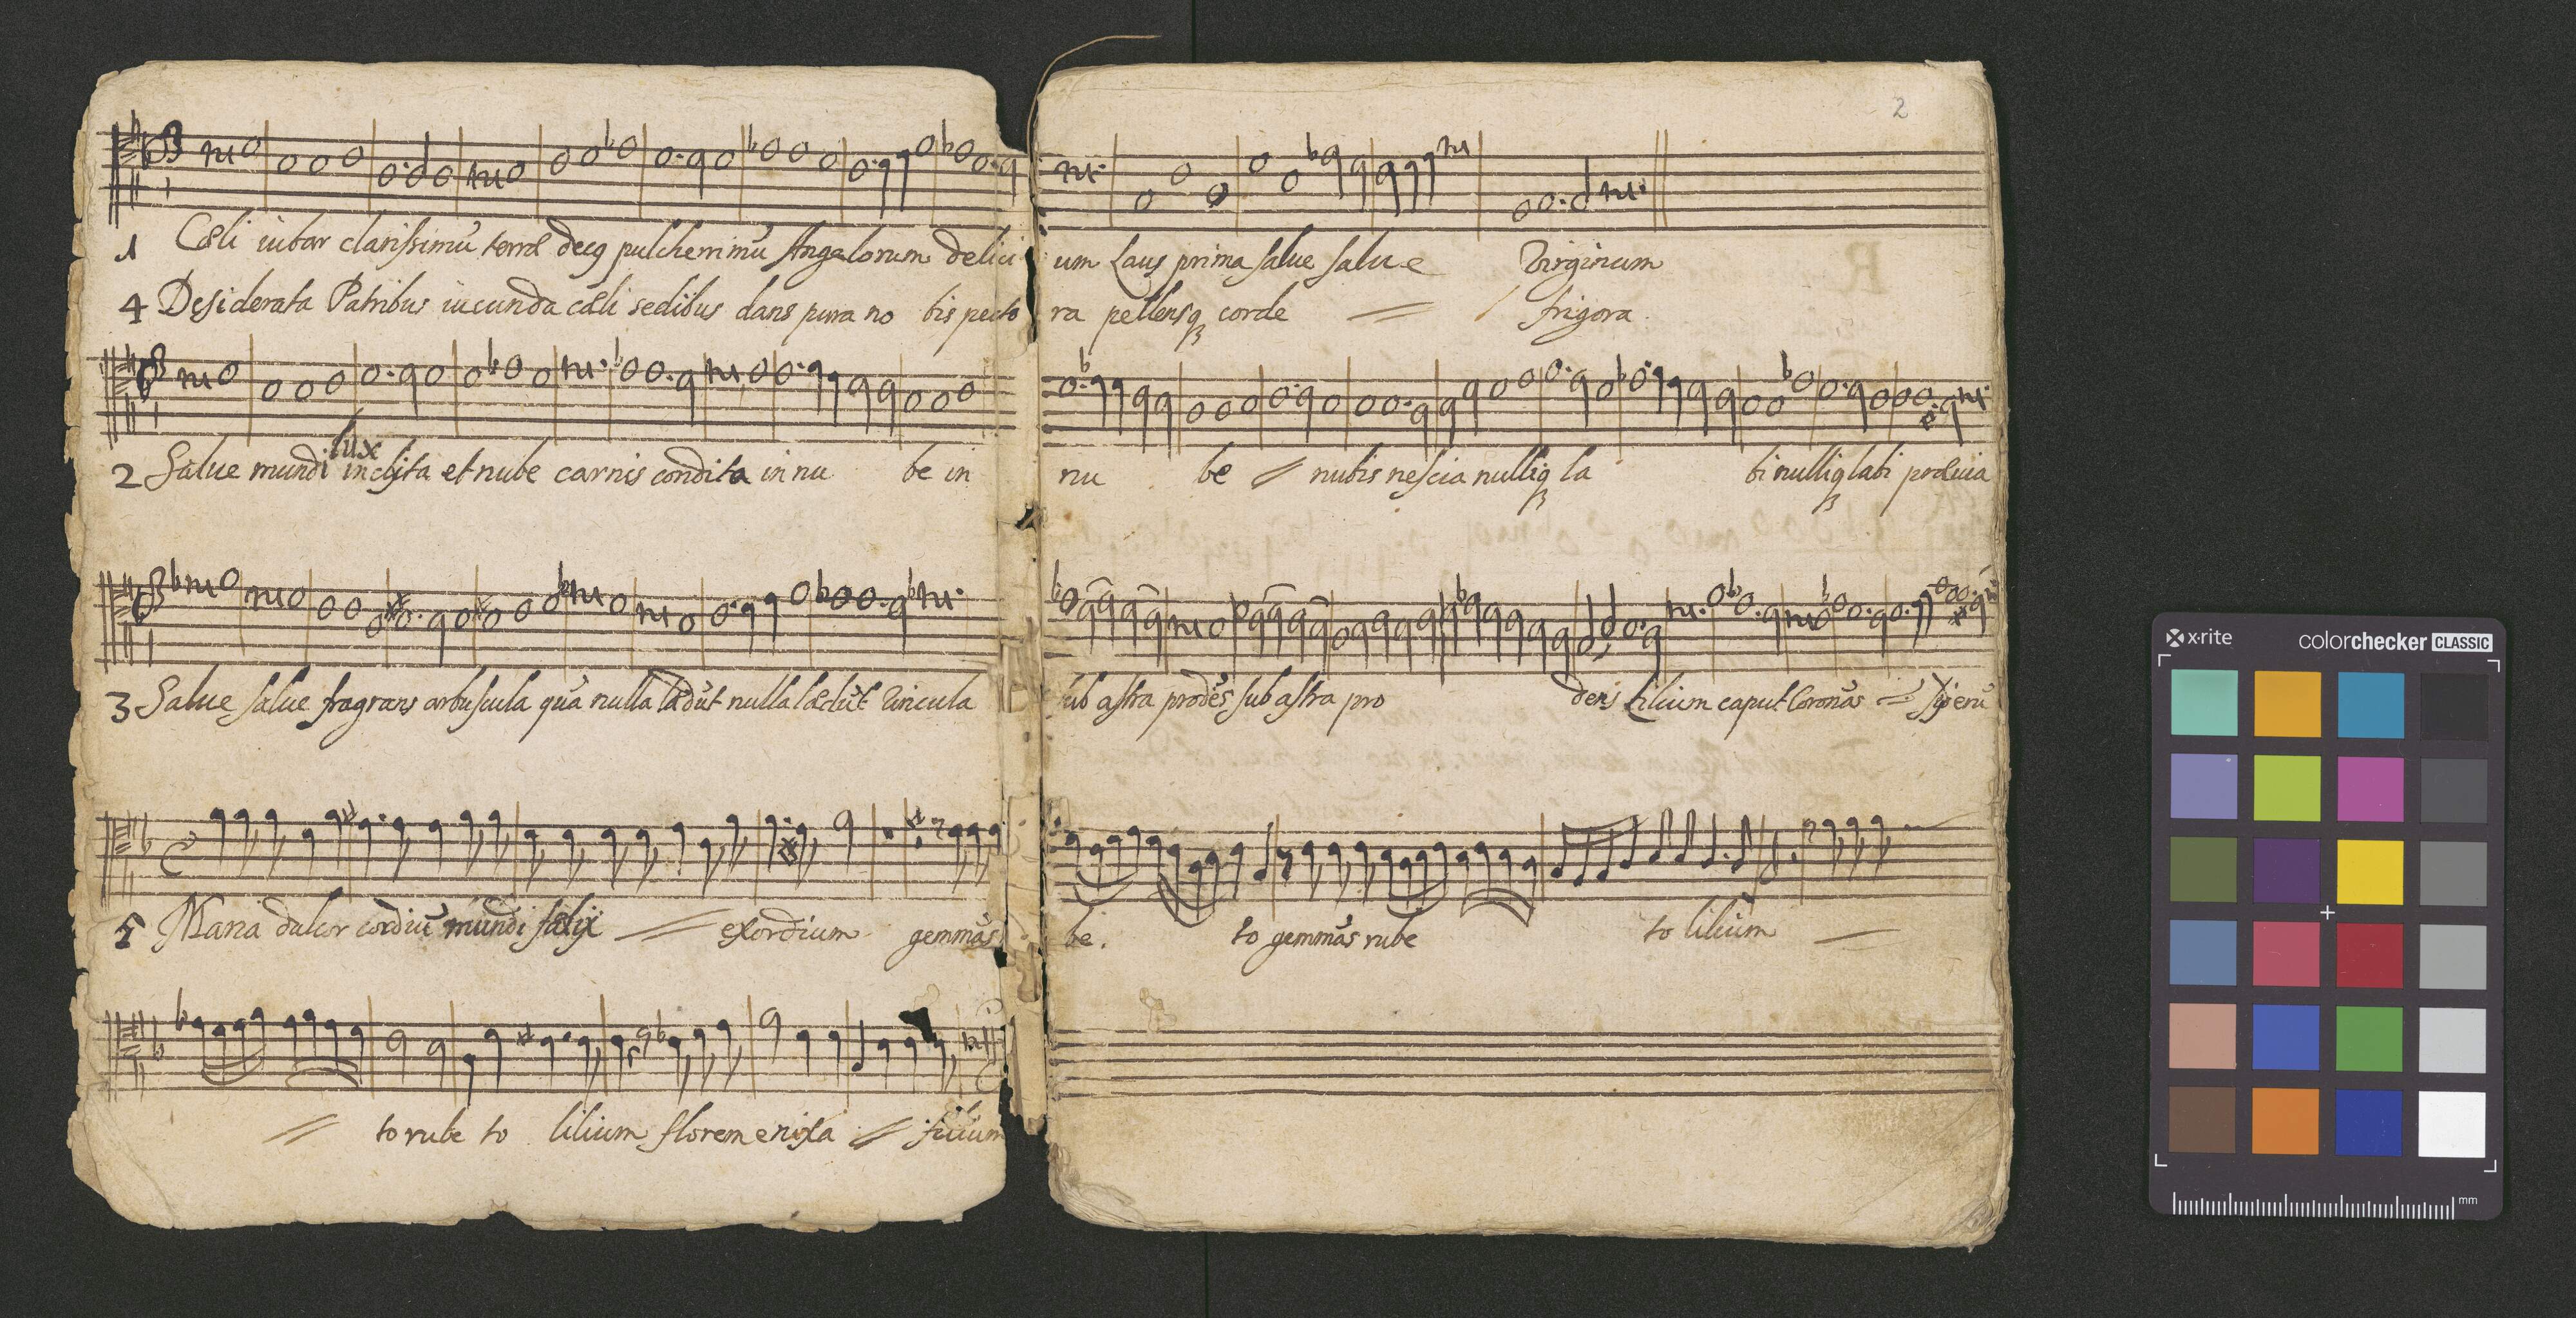 2
1 Cæli iubar clarissimũ terræ decꝯ pulcherrimũ Angelorum delici
um Laus prima salue salue Virginum
4 Desiderata Patribus iucunda cæli sedibus dans pura no bis pecto
ra pellensq₃ corde = frigora.
lux
2 Salue mundi inclyta et nube carnis condita in nu be in
nu be = nubis nescia nulliq₃ la bi nulliq₃ labi præuia
3 Salue salue fragrans arbuscula quã nulla lædũt nulla lædũt vincula
sub astra prodẽs sub astra pro dens Lilium caput Coronãs =
5 Maria dulcor cordiũ mundi felix = exordium gemmãs
be. to gemmãs rube to lilium =
= to rube to lilium florem enixa = filium
x·rite
colorchecker CLASSIC
mm